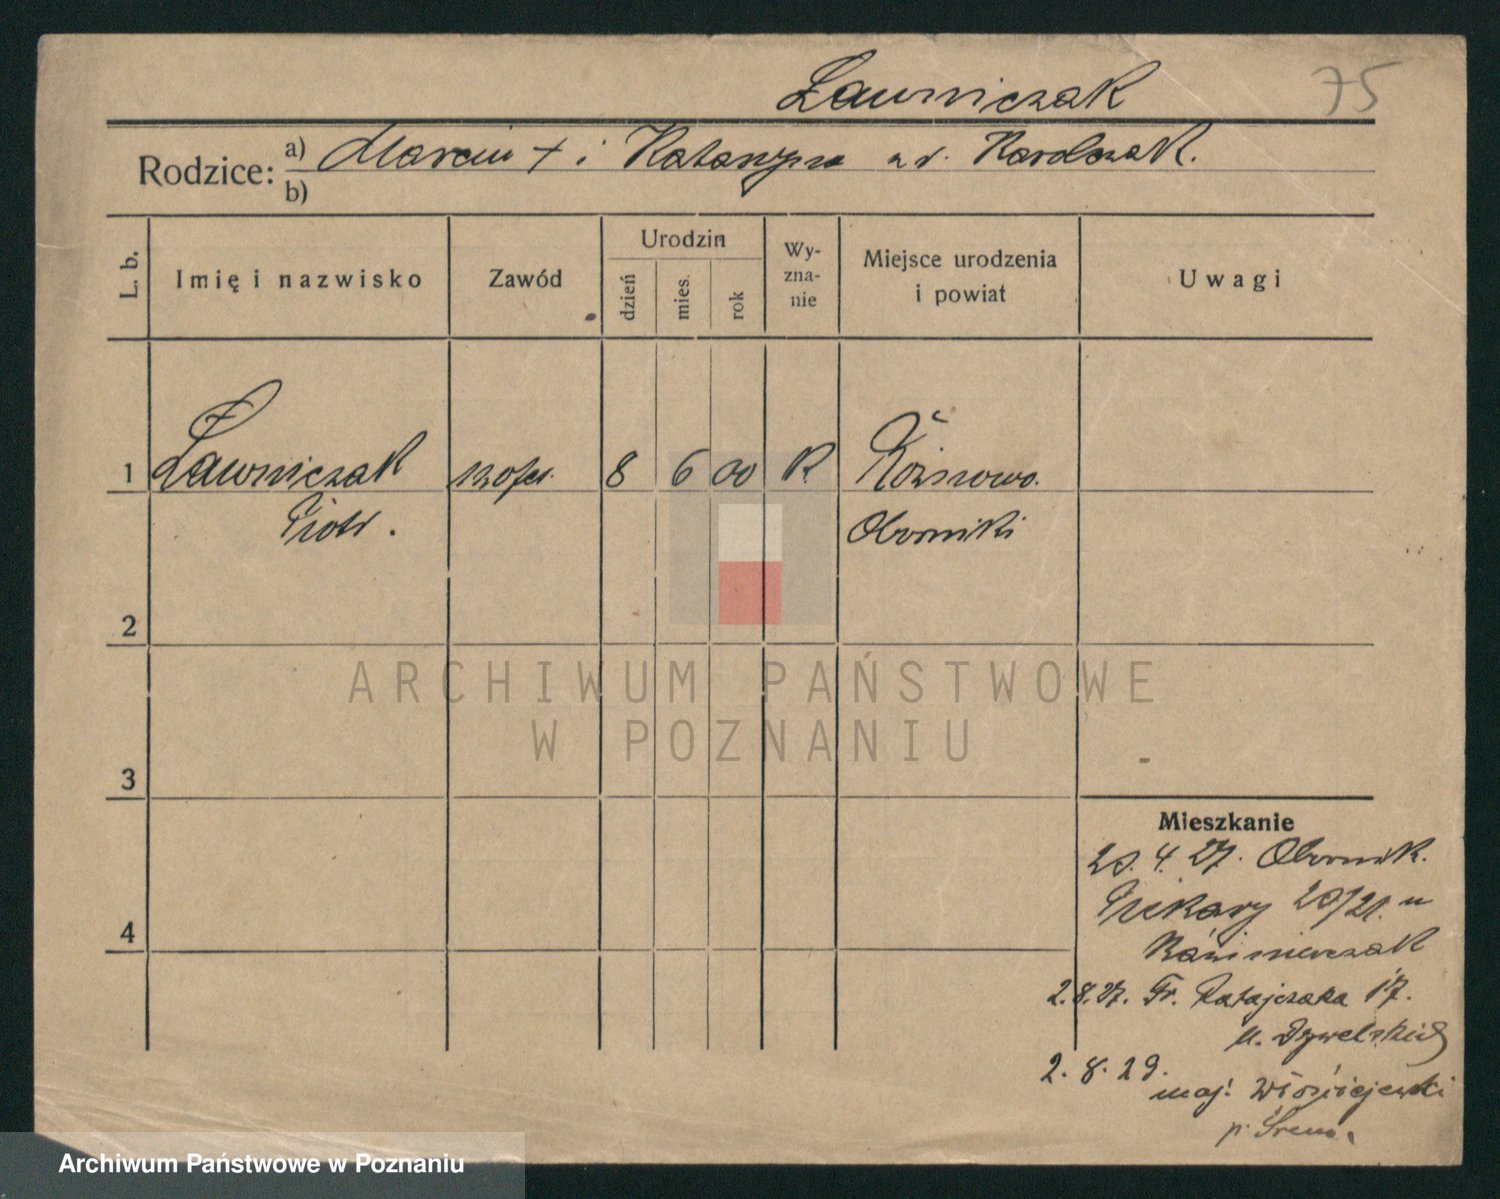 Ławniczak 75
Rodzice: a) Marcin + i Katarzyna z d. Karolczak.
b)
L. b.
Imię i nazwisko
Zawód
Urodzin
dzień
mies.
rok
Wy-
zna-
nie
Miejsce urodzenia
i powiat
Uwagi
1 Ławniczak 8 6 00 R Różnowo.
Piotr. Oborniki
2
3
4
Mieszkanie
20. 4. 27. Obornik.
Piekary 20/21. u
Kaźmierczak
2.8.27. Fr. Ratajczaka 17.
u.
2. 8. 29.
maj: Włościejewki
p. Śrem.
ARCHIWUM PAŃSTWOWE
W POZNANIU
Archiwum Państwowe w Poznaniu